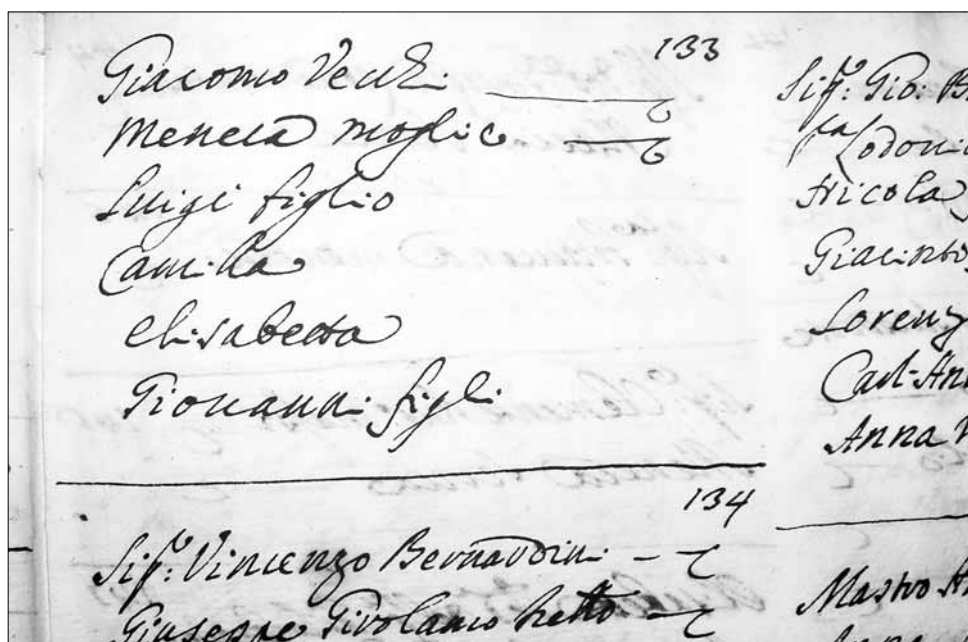 133
Giacomo Vecchi
Meneca moglie
Luigi figlio
Camilla
Elisabetta
Giovanni figli
134
Sigr: Vincenzo Bernardini
Giuseppe Girolamo
Sigr: Gio: B
Lodovi
Nicola
Giacinto
Lorenz
Anna
Mastro